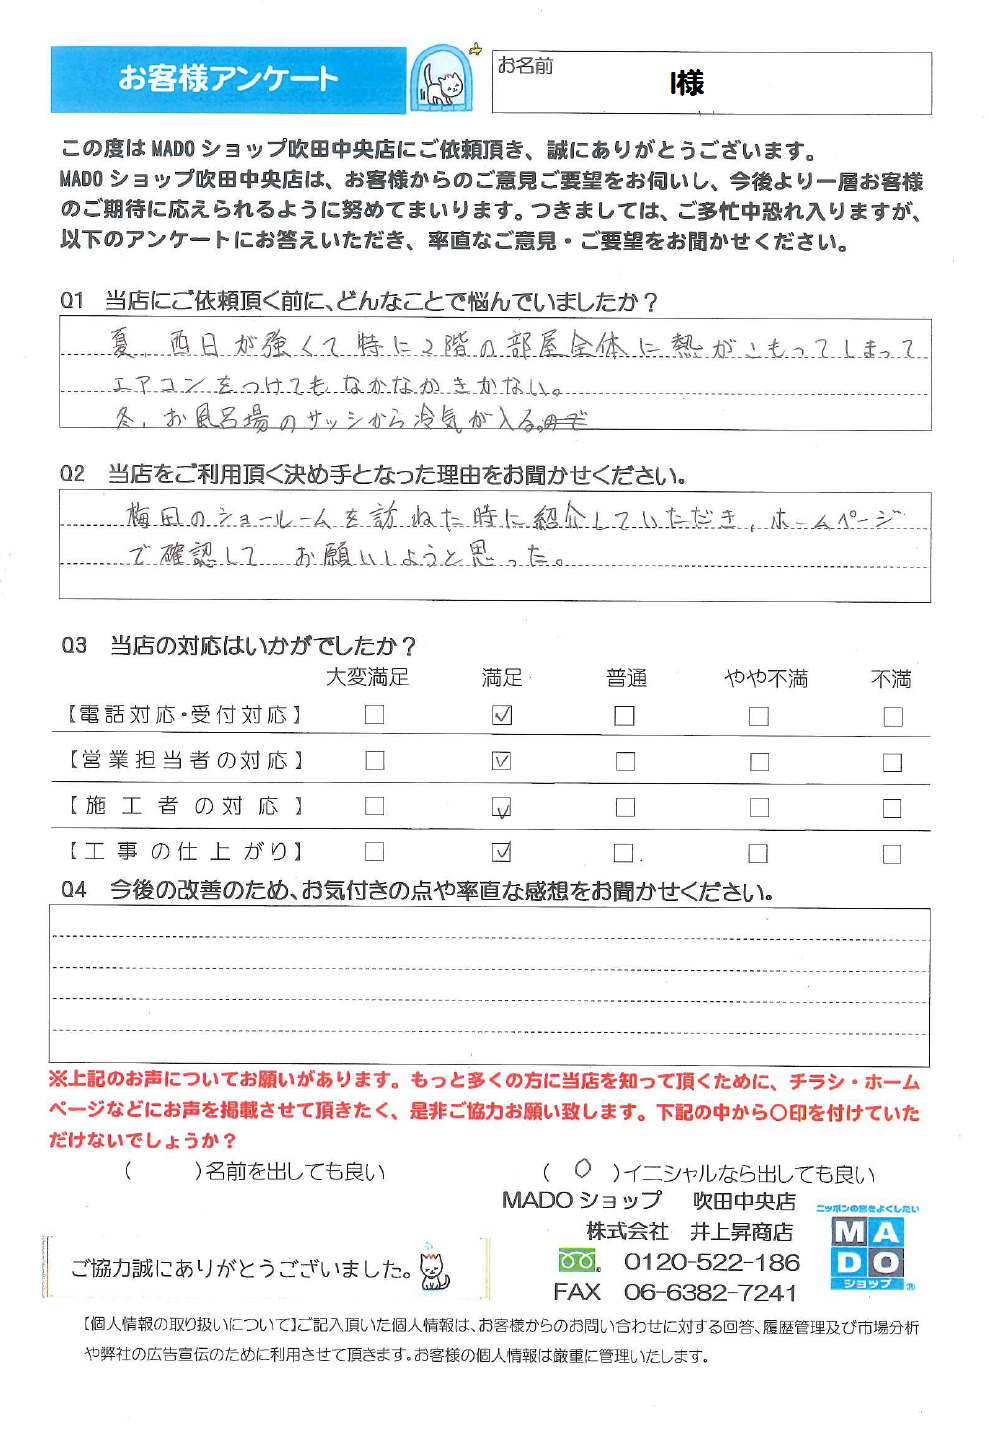 お客様アンケート
お名前
I様
この度は MADO ショップ吹田中央店にご依頼頂き、誠にありがとうございます。
MADO ショップ吹田中央店は、お客様からのご意見ご要望をお伺いし、今後より一層お客様
のご期待に応えられるように努めてまいります。つきましては、ご多忙中恐れ入りますが、
以下のアンケートにお答えいただき、率直なご意見・ご要望をお聞かせください。
Q1 当店にご依頼頂く前に、どんなことで悩んでいましたか？
夏、西日が強くて特に2階の部屋全体に熱がこもってしまって
エアコンをつけてもなかなかきかない。
冬、お風呂場のサッシから冷気が入る。ので
Q2 当店をご利用頂く決め手となった理由をお聞かせください。
梅田のショールームを訪ねた時に紹介していただき、ホームページ
で確認して お願いしようと思った。
Q3 当店の対応はいかがでしたか？
大変満足 満足 普通 やや不満 不満
【電話対応・受付対応】 □ ☑ □ □ □
【営業担当者の対応】 □ ☑ □ □ □
【施工者の対応】 □ ☑ □ □ □
【工事の仕上がり】 □ ☑ □ □ □
Q4 今後の改善のため、お気付きの点や率直な感想をお聞かせください。
※上記のお声についてお願いがあります。もっと多くの方に当店を知って頂くために、チラシ・ホーム
ページなどにお声を掲載させて頂きたく、是非ご協力お願い致します。下記の中から〇印を付けていた
だけないでしょうか？
（ ）名前を出しても良い （ 〇 ）イニシャルなら出しても良い
MADO ショップ 吹田中央店
株式会社 井上昇商店
0120-522-186
FAX 06-6382-7241
ニッポンの窓をよくしたい
MADO
ショップ
®
ご協力誠にありがとうございました。
【個人情報の取り扱いについて】ご記入頂いた個人情報は、お客様からのお問い合わせに対する回答、履歴管理及び市場分析
や弊社の広告宣伝のために利用させて頂きます。お客様の個人情報は厳重に管理いたします。